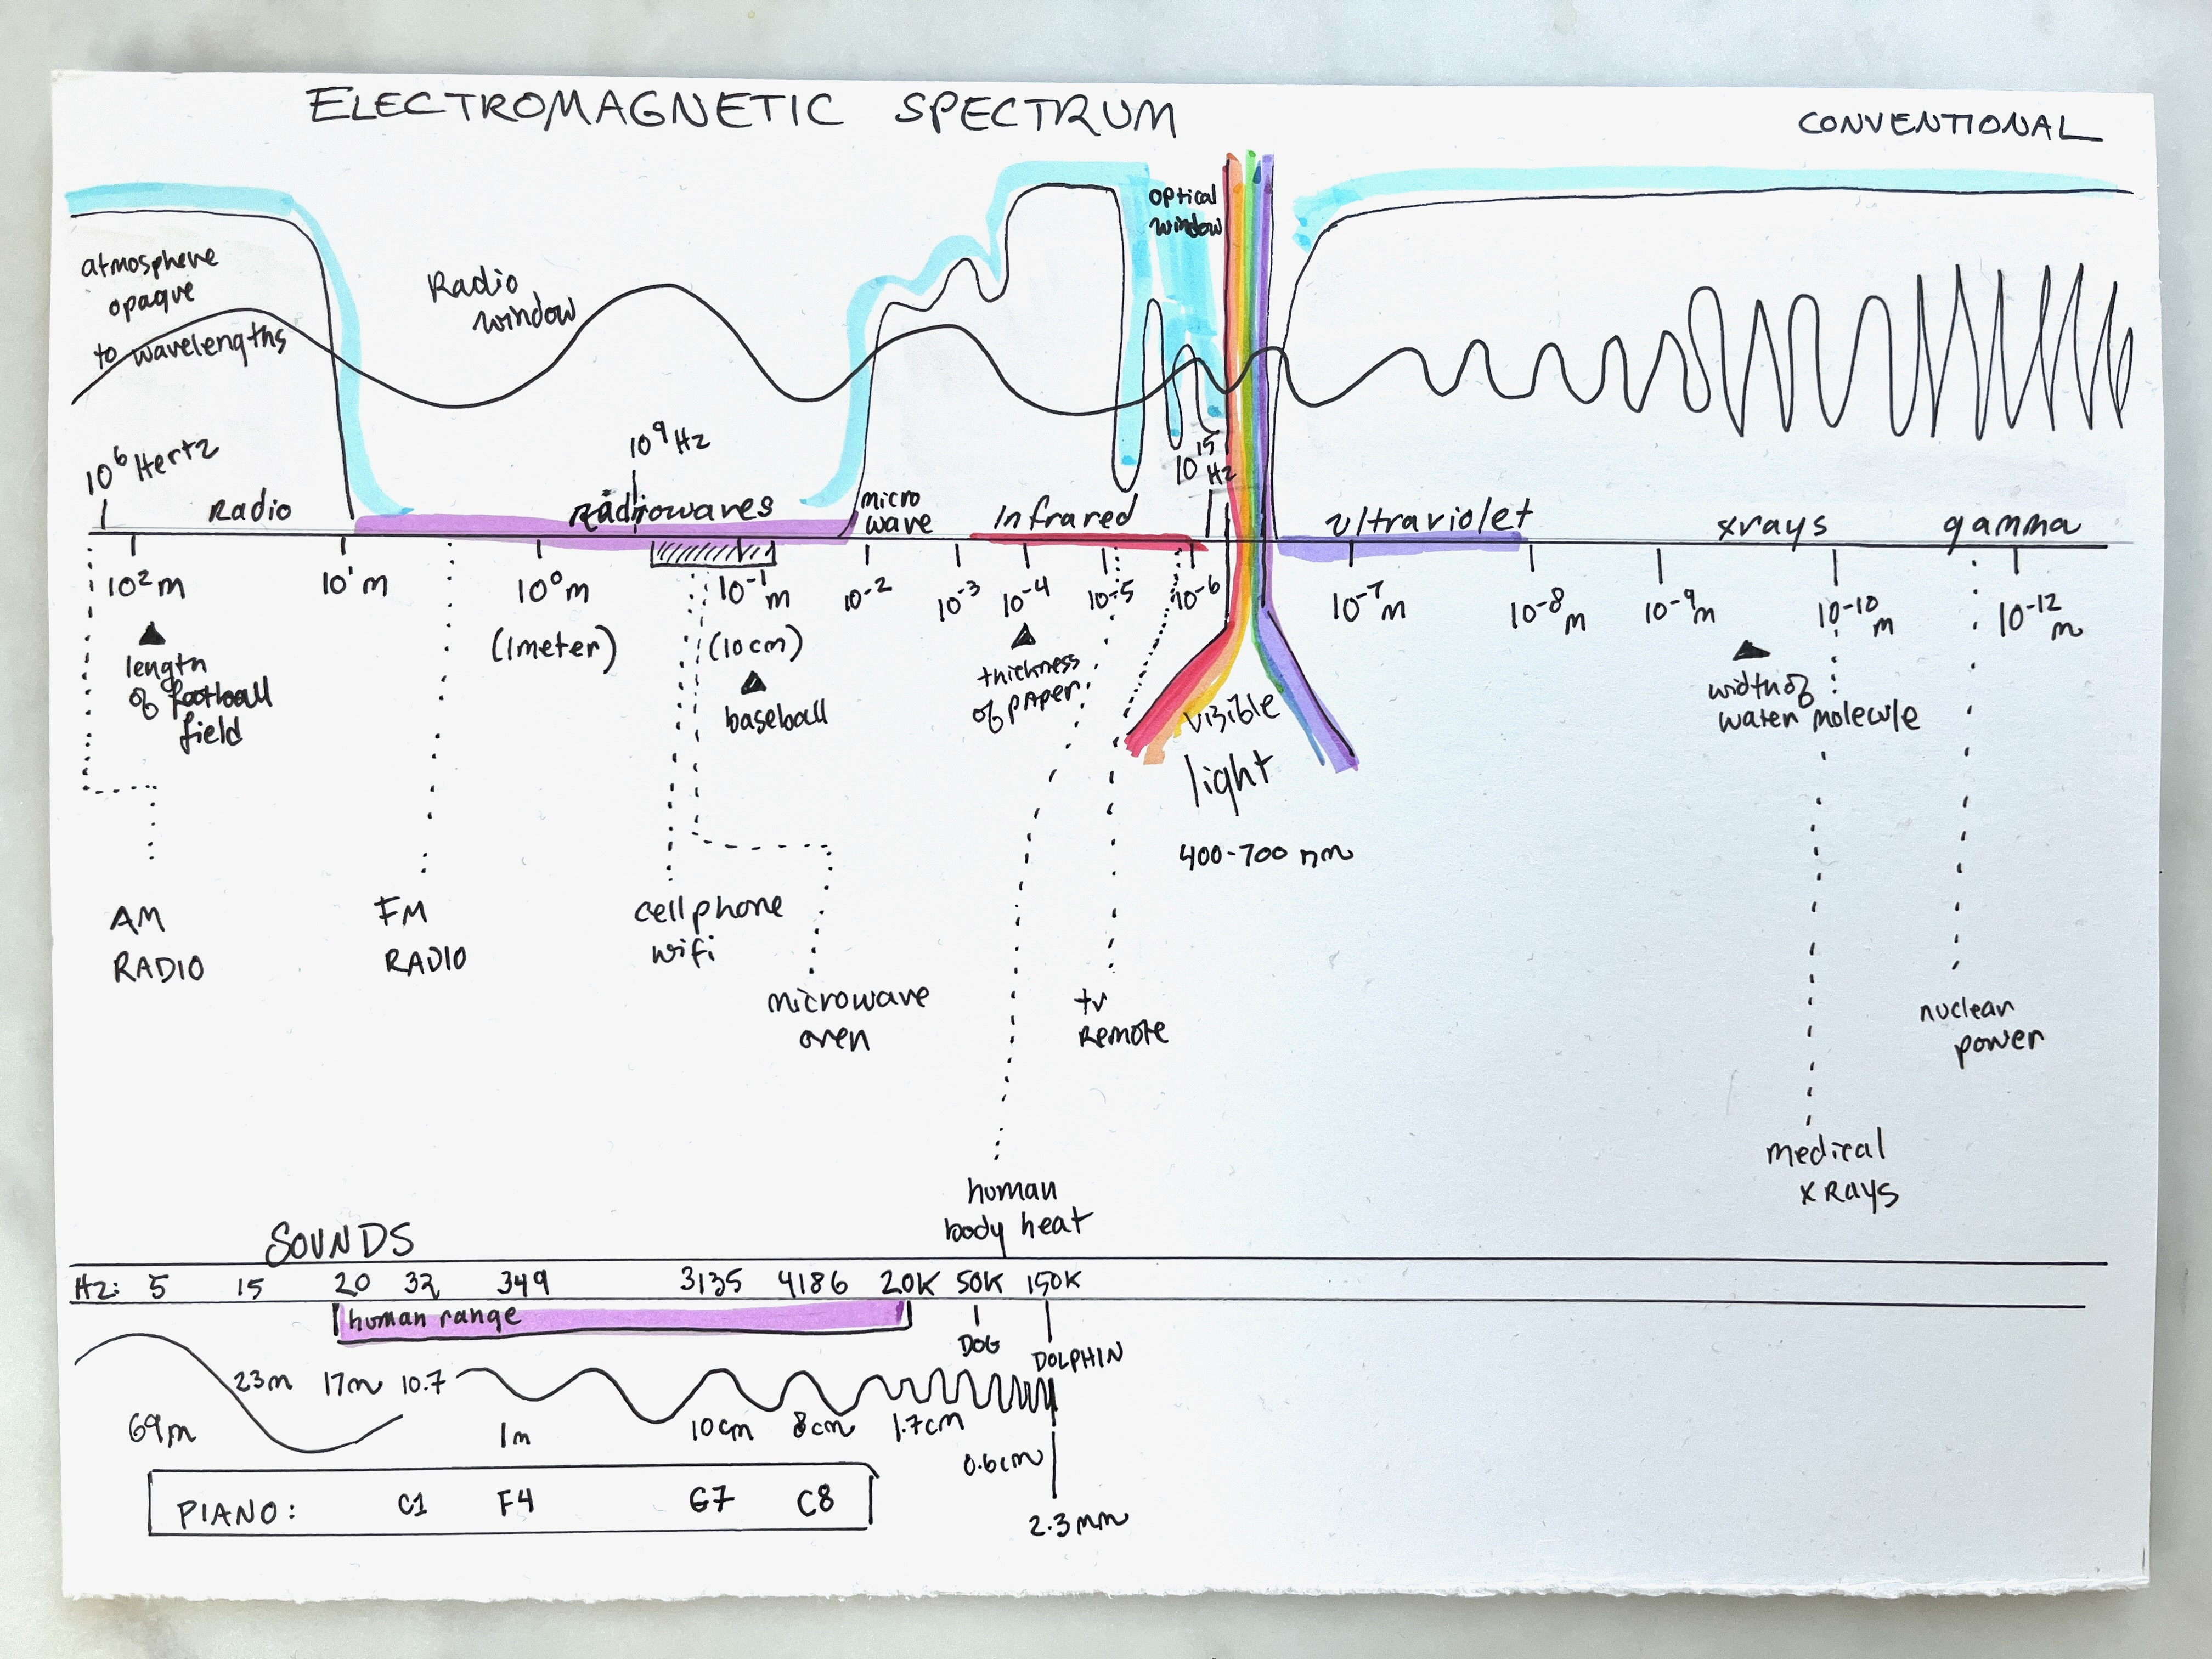 ELECTROMAGNETIC SPECTRUM
CONVENTIONAL
atmosphere
opaque
to wavelengths
Radio
window
optical
window
10⁶ Hertz
10⁹ Hz
10¹⁵
Hz
Radio
Radiowaves
micro
wave
Infrared
ultraviolet
xrays
gamma
10² m
10¹ m
10⁰ m
10⁻¹ m
10⁻²
10⁻³
10⁻⁴
10⁻⁵
10⁻⁶
10⁻⁷ m
10⁻⁸ m
10⁻⁹ m
10⁻¹⁰ m
10⁻¹² m
(1meter)
(10cm)
length
of football
field
baseball
thickness
of paper
visible
light
400-700 nm
width of
water molecule
AM
RADIO
FM
RADIO
cellphone
wifi
microwave
oven
tv
Remote
nuclear
power
human
body heat
medical
x RAYS
SOUNDS
Hz: 5 15 20 32 349 3135 4186 20K 50K 150K
human range
DOG
DOLPHIN
69m
23m 17m 10.7
1m
10cm 8cm 1.7cm
0.6cm
2.3mm
PIANO: C1 F4 G7 C8